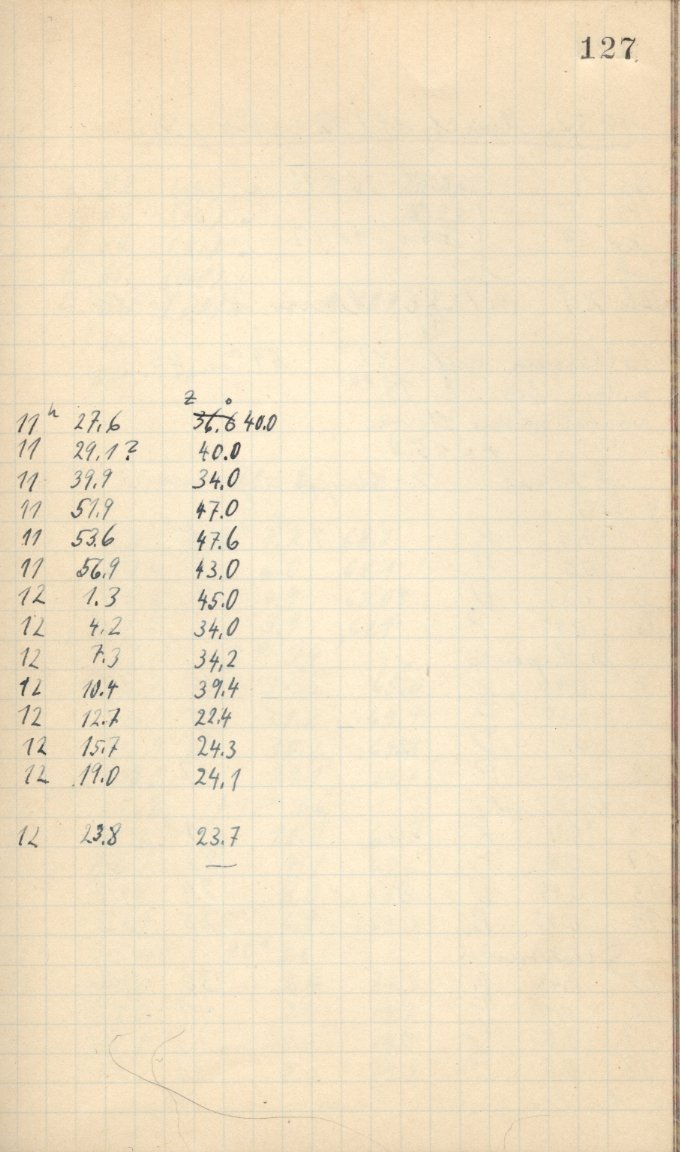 127
z °
11 h 27.6 36.6 40.0
11 29.1? 40.0
11 39.9 34.0
11 51.9 47.0
11 53.6 47.6
11 56.9 43.0
12 1.3 45.0
12 4.2 34.0
12 7.3 34.2
12 10.4 39.4
12 12.7 22.4
12 15.7 24.3
12 19.0 24.1
12 23.8 23.7